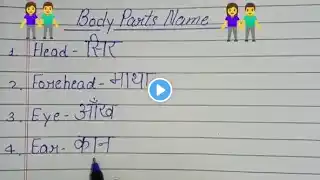 Body Parts Name
1. Head - सिर
2. Forehead - माथा
3. Eye - आँख
4. Ear - कान